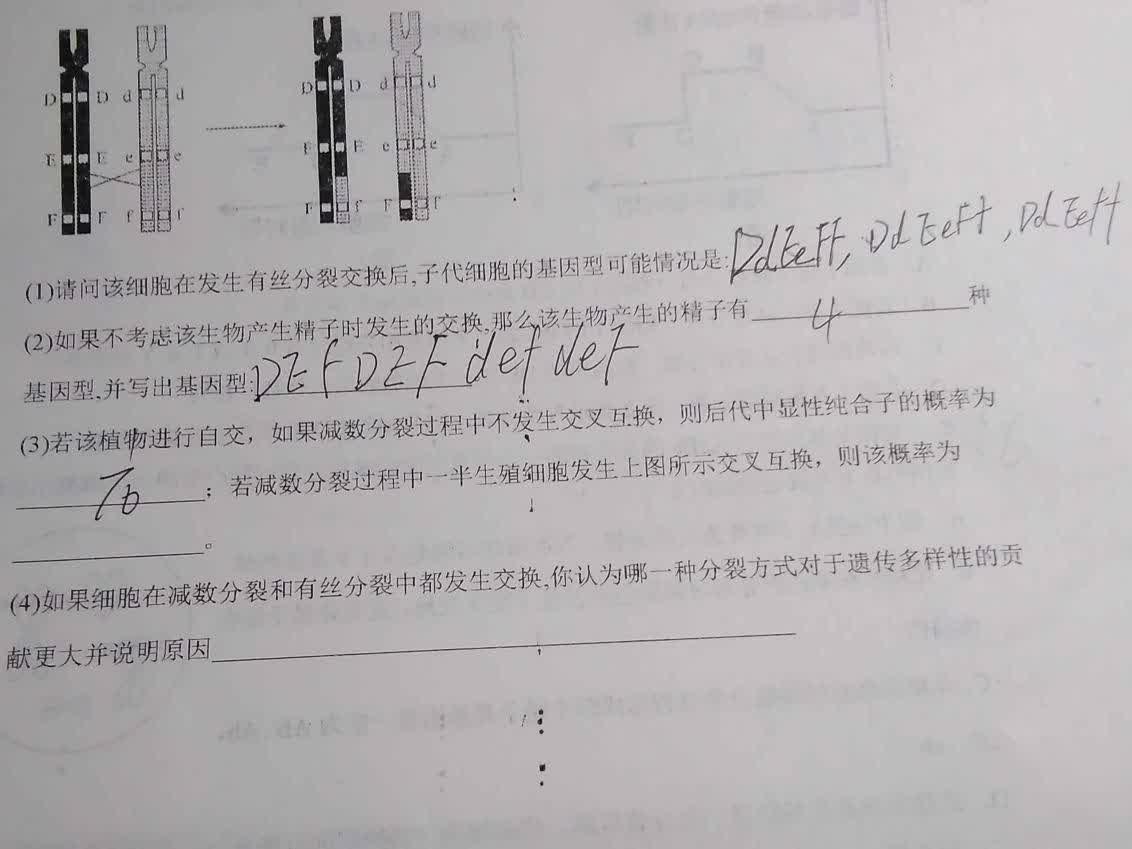 D D d d D D d d
E E e e E E e e
F F f f F f F f
(1)请问该细胞在发生有丝分裂交换后,子代细胞的基因型可能情况是:DdEeFf, DdEeff, DdEeff
(2)如果不考虑该生物产生精子时发生的交换,那么该生物产生的精子有 4 种
基因型,并写出基因型:DEf DEF def deF
(3)若该植物进行自交，如果减数分裂过程中不发生交叉互换，则后代中显性纯合子的概率为
；若减数分裂过程中一半生殖细胞发生上图所示交叉互换，则该概率为
。
(4)如果细胞在减数分裂和有丝分裂中都发生交换,你认为哪一种分裂方式对于遗传多样性的贡
献更大并说明原因